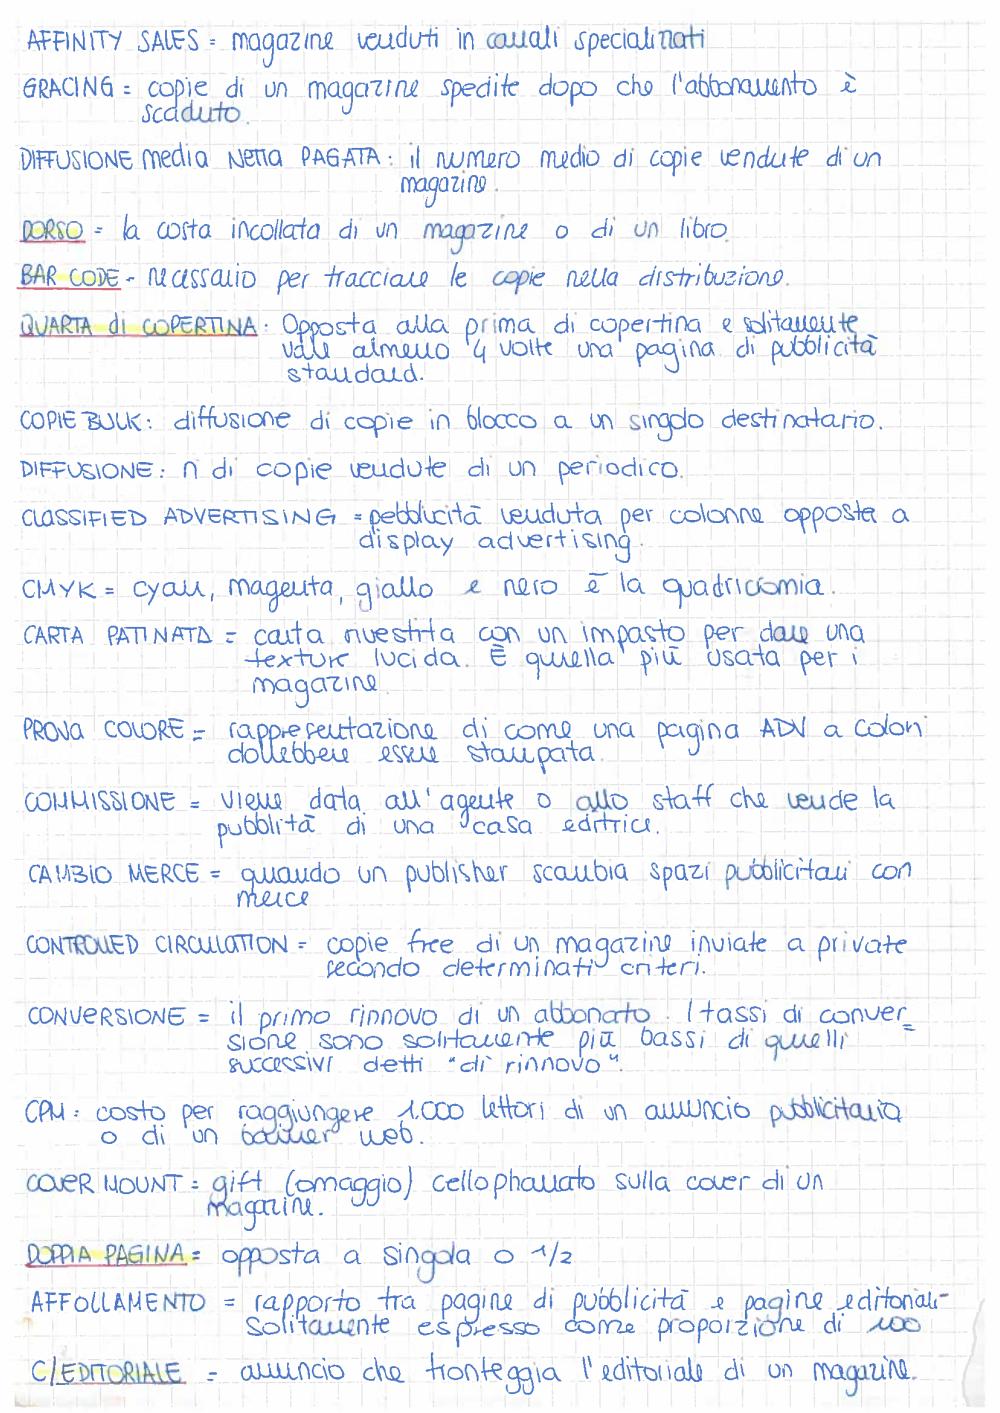 AFFINITY SALES = magazine venduti in canali specializzati
GRACING = copie di un magazine spedite dopo che l'abbonamento è
scaduto.
DIFFUSIONE media NETTA PAGATA: il numero medio di copie vendute di un
magazine.
DORSO = la costa incollata di un magazine o di un libro.
BAR CODE - necessario per tracciare le copie nella distribuzione.
QUARTA di COPERTINA: Opposta alla prima di copertina e solitamente
vale almeno 4 volte una pagina di pubblicità
standard.
COPIE BULK: diffusione di copie in blocco a un singolo destinatario.
DIFFUSIONE: n di copie vendute di un periodico.
CLASSIFIED ADVERTISING = pebblicità venduta per colonne opposta a
display advertising.
CMYK = cyan, magenta, giallo e nero è la quadricromia.
CARTA PATINATA = carta rivestita con un impasto per dare una
texture lucida. È quella più usata per i
magazine
PROVA COLORE = rappresentazione di come una pagina ADV a colori
dovrebbere essere stampata.
COMMISSIONE = viene data all'agente o allo staff che vende la
pubblità di una casa editrice.
CAMBIO MERCE = quando un publisher scambia spazi pubblicitari con
merce
CONTROLLED CIRCULATION = copie free di un magazine inviate a private
secondo determinati criteri.
CONVERSIONE = il primo rinnovo di un abbonato. I tassi di conver=
sione sono solitamente più bassi di quelli
successivi detti "di rinnovo".
CPM: costo per raggiungere 1.000 lettori di un annuncio pubblicitario
o di un banner web.
COVER MOUNT = gift (omaggio) cellophanato sulla cover di un
magazine.
DOPPIA PAGINA = opposta a singola o 1/2
AFFOLLAMENTO = rapporto tra pagine di pubblicità e pagine editoriali-
Solitamente espresso come proporzione di 100
C/EDITORIALE = annuncio che fronteggia l'editoriale di un magazine.